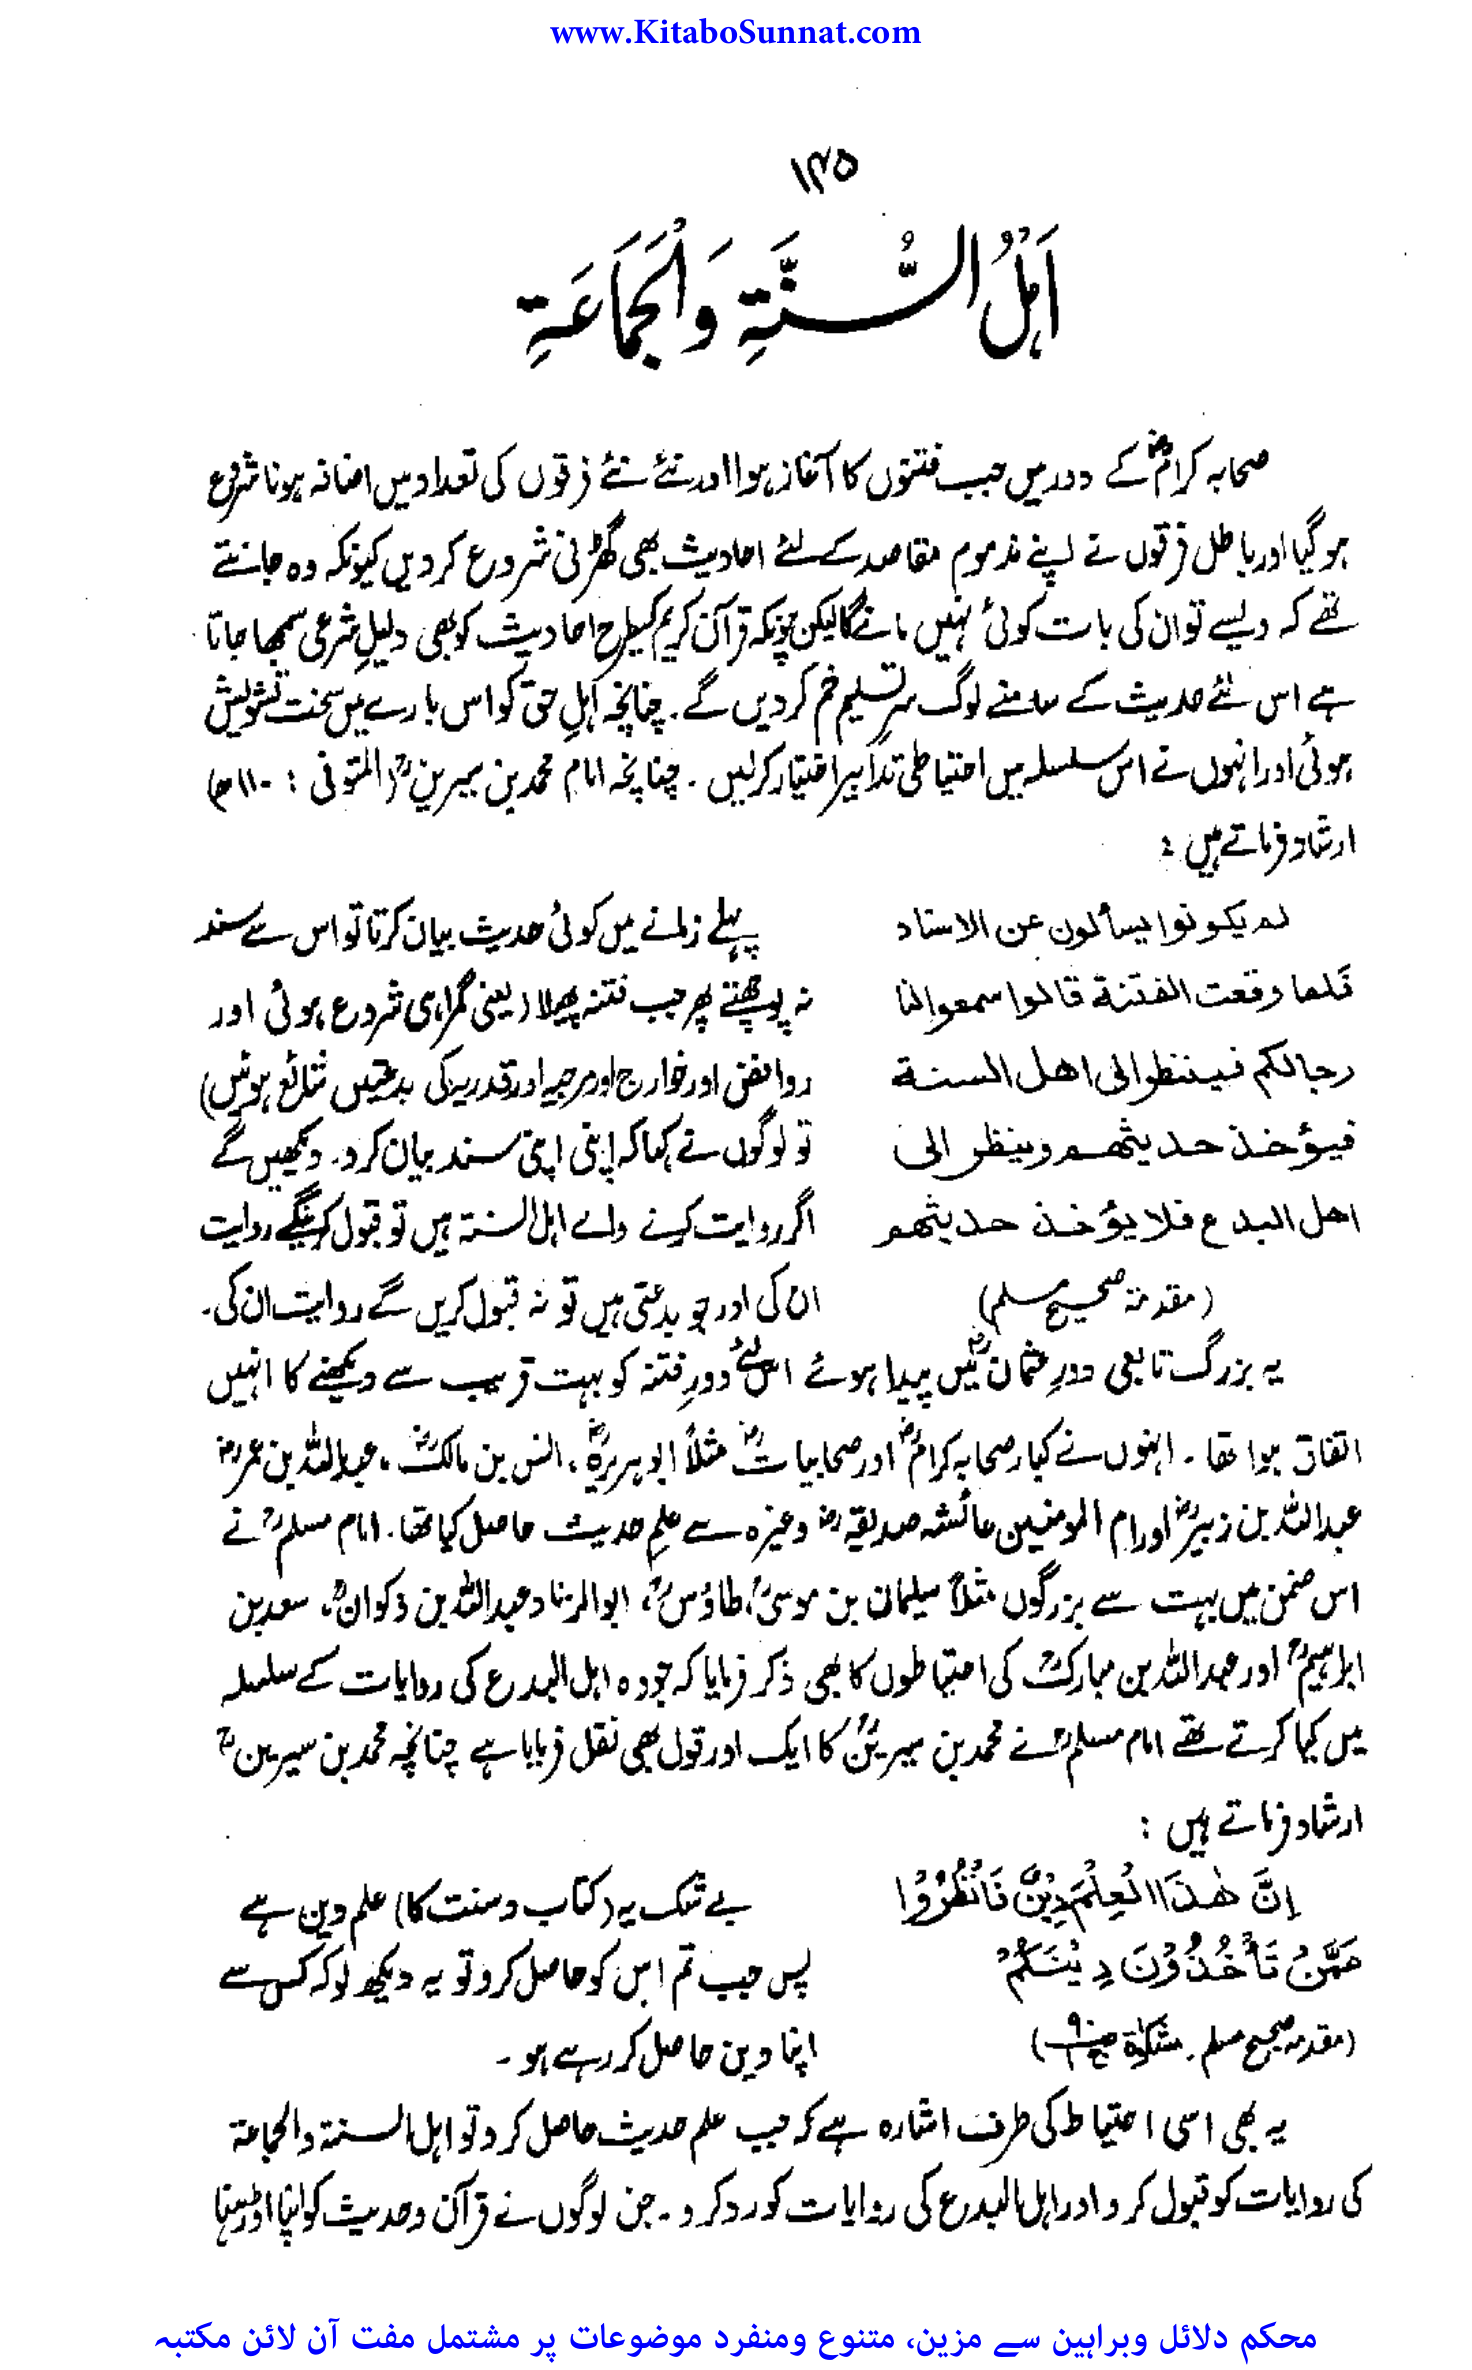 www.KitaboSunnat.com
۱۳۵
اَہْلُ السُّنَّۃِ وَالْجَمَاعَۃِ
صحابہ کرامؓ کے دور میں جب فتنوں کا آغاز ہوا اور نئے نئے فرقوں کی تعداد میں اضافہ ہونا شروع
ہو گیا اور باطل فرقوں نے اپنے مذموم مقاصد کے لئے احادیث بھی گھڑنی شروع کر دیں کیونکہ وہ جانتے
تھے کہ ویسے تو ان کی بات کوئی نہیں مانے گا لیکن چونکہ قرآن کریم کیطرح احادیث کو بھی دلیلِ شرعی سمجھا جاتا
ہے اس لئے حدیث کے سامنے لوگ سرِ تسلیم خم کر دیں گے۔ چنانچہ اہلِ حق کو اس بارے میں سخت تشویش
ہوئی اور انہوں نے اس سلسلہ میں احتیاطی تدابیر اختیار کرلیں۔ چنانچہ امام محمد بن سیرینؒ (المتوفی : ۱۱۰ھ)
ارشاد فرماتے ہیں :
لم یکونوا یسألون عن الاسناد
فلما وقعت الفتنة قالوا سمعوا لنا
رجالکم فینظر الی اهل السنة
فیؤخذ حدیثهم وینظر الی
اهل البدع فلا یؤخذ حدیثهم
(مقدمہ صحیح مسلم)
پہلے زمانے میں کوئی حدیث بیان کرتا تو اس سے سند
نہ پوچھتے پھر جب فتنہ پھیلا (یعنی گمراہی شروع ہوئی اور
روافض اور خوارج اور مرجیہ اور قدریہ کی بدعتیں شائع ہوئیں)
تو لوگوں نے کہا کہ اپنی اپنی سند بیان کرو۔ دیکھیں گے
اگر روایت کرنے والے اہل السنۃ ہیں تو قبول کرینگے روایت
ان کی اور جو بدعتی ہیں تو نہ قبول کریں گے روایت ان کی۔
یہ بزرگ تابعی دورِ عثمانؓ میں پیدا ہوئے اس لئے دورِ فتنہ کو بہت قریب سے دیکھنے کا انہیں
اتفاق ہوا تھا۔ انہوں نے کبار صحابہ کرامؓ اور صحابیاتؓ مثلاً ابو ہریرہؓ، انس بن مالکؓ، عبداللہ بن عمرؓ
عبداللہ بن زبیرؓ اور ام المومنین عائشہ صدیقہؓ وغیرہ سے علمِ حدیث حاصل کیا تھا۔ امام مسلمؒ نے
اس ضمن میں بہت سے بزرگوں مثلاً سلیمان بن موسیٰؒ، طاؤسؒ، ابوالزناد عبداللہ بن ذکوانؒ، سعد بن
ابراہیمؒ اور عبداللہ بن مبارکؒ کی احتیاطوں کا بھی ذکر فرمایا کہ جو وہ اہل البدع کی روایات کے سلسلہ
میں کیا کرتے تھے امام مسلمؒ نے محمد بن سیرینؒ کا ایک اور قول بھی نقل فرمایا ہے چنانچہ محمد بن سیرینؒ
ارشاد فرماتے ہیں :
اِنَّ هٰذَا الْعِلْمَ دِیْنٌ فَانْظُرُوْا
عَمَّنْ تَأْخُذُوْنَ دِیْنَکُمْ
(مقدمہ صحیح مسلم۔ مشکوٰۃ
بے شک یہ (کتاب و سنت کا) علم دین ہے
پس جب تم اس کو حاصل کرو تو یہ دیکھ لو کہ کس سے
اپنا دین حاصل کر رہے ہو۔
یہ بھی اسی احتیاط کی طرف اشارہ ہے کہ جب علم حدیث حاصل کرو تو اہل السنۃ والجماعۃ
کی روایات کو قبول کرو اور اہل البدع کی روایات کو رد کرو۔ جن لوگوں نے قرآن و حدیث کو اپنا اوڑھنا
محکم دلائل وبراہین سے مزین، متنوع ومنفرد موضوعات پر مشتمل مفت آن لائن مکتبہ